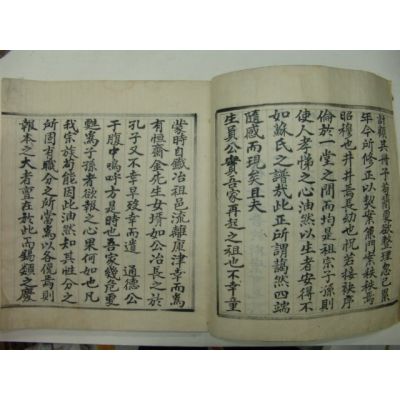 其冊子苟簡更欲整理忽已累
年今所修正以製案門紫秩秩焉
昭穆也井井焉長幼也祝若接袂序
倫於一堂之間而均是祖宗子孫則
使人孝悌之心油然以生者安得不
如蘇氏之譜哉此正所謂藹然四端
隨感而現矣且夫
生員公實吾家再起之祖也不幸重
蒙時自鐵冶祖邑流離康津幸而爲
有恒齋金先生女壻如公冶長之於
孔子又不幸早歿幸而遺 通德公
于腹中嗚呼方是時也吾家幾危重
甦爲子孫者欲報之心果何如也凡
我宗族苟能因此油然知其性分之
所固有職分之所當爲以各俛焉則
報本之大者亶在於此而錫類之慶